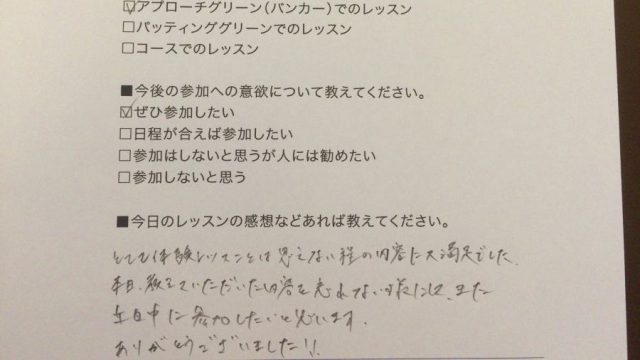 ☑アプローチグリーン(バンカー)でのレッスン
□パッティンググリーンでのレッスン
□コースでのレッスン
■今後の参加への意欲について教えてください。
☑ぜひ参加したい
□日程が合えば参加したい
□参加はしないと思うが人には勧めたい
□参加しないと思う
■今日のレッスンの感想などあれば教えてください。
とても体験レッスンとは思えない程の内容に大満足でした。
本日、教えていただいた内容を忘れない様にして、また
年日中に参加したいと思います。
ありがとうございました!!